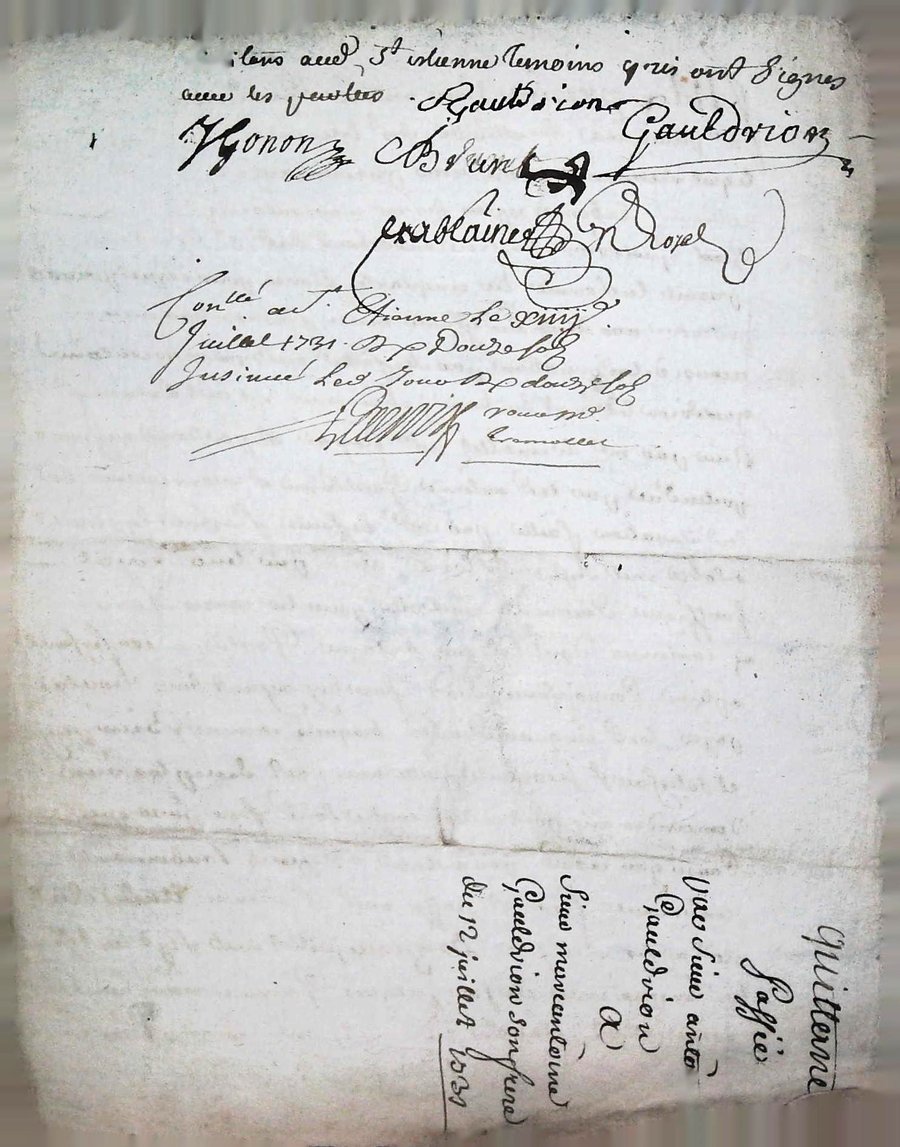 itans aud. St estienne temoins qui ont signes
avec les parties Gauldrion Gauldrion
Honon Brun
Exablaines Royel
Conllé a St Etienne Le xiiij
Juillet 1731. Rx Douze sols
Insinué Led Jour Rx douze sols
quittance
passée
par Sieur anto
Gauldrion
a
Sieur marcantoine
Gauldrion son frere
du 12 juillet 1731